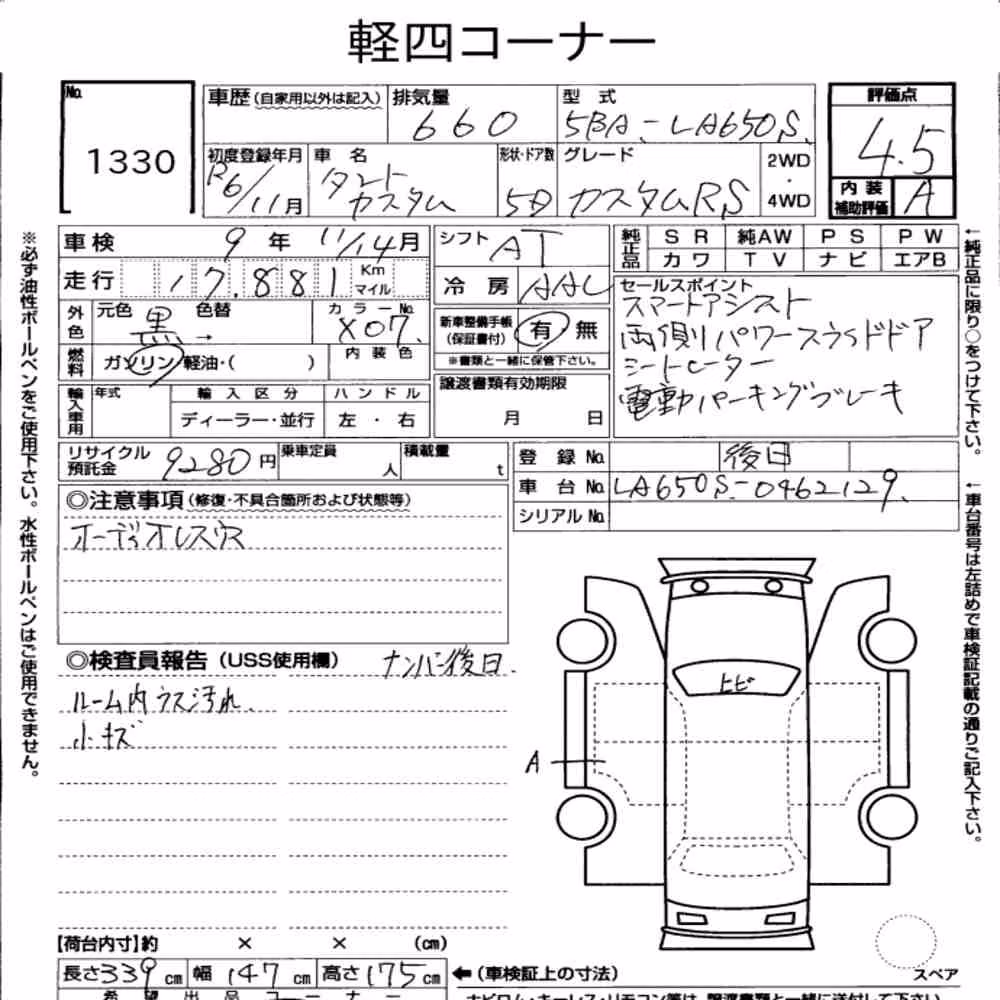 軽四コーナー
No. 1330
車歴(自家用以外は記入)
排気量 660
型式 5BA-LA650S
評価点 4.5
内装補助評価 A
初度登録年月 R6/11月
車名 タント カスタム
形状・ドア数 5D
グレード カスタムRS
2WD・4WD
車検 9年 11/14月
シフト AT
純正品 SR 純AW PS PW
カワ TV ナビ エアB
走行 17,881 Km マイル
冷房 AAC
セールスポイント
スマートアシスト
両側パワースライドドア
シートヒーター
電動パーキングブレーキ
外色 元色 黒 → 色替 カラーNo. X07
新車整備手帳(保証書付) 有・無
※書類と一緒に保管下さい。
燃料 ガソリン・軽油・( ) 内装色
輸入車用 年式 輸入区分 ハンドル
ディーラー・並行 左・右
譲渡書類有効期限
月 日
リサイクル預託金 9280円 乗車定員 人 積載量 t
登録No. 後日
車台No. LA650S-0462129
シリアルNo.
◎注意事項(修復・不具合箇所および状態等)
オーディオレス
◎検査員報告(USS使用欄) ナンバー後日.
ルーム内ウス汚れ.
小キズ
トビ
A
スペア
【荷台内寸】約 × × (cm)
長さ339cm 幅147cm 高さ175cm
←(車検証上の寸法)
※必ず油性ボールペンをご使用下さい。水性ボールペンはご使用できません。
←純正品に限り○をつけて下さい。
←車台番号は左詰めで車検証記載の通りご記入下さい。